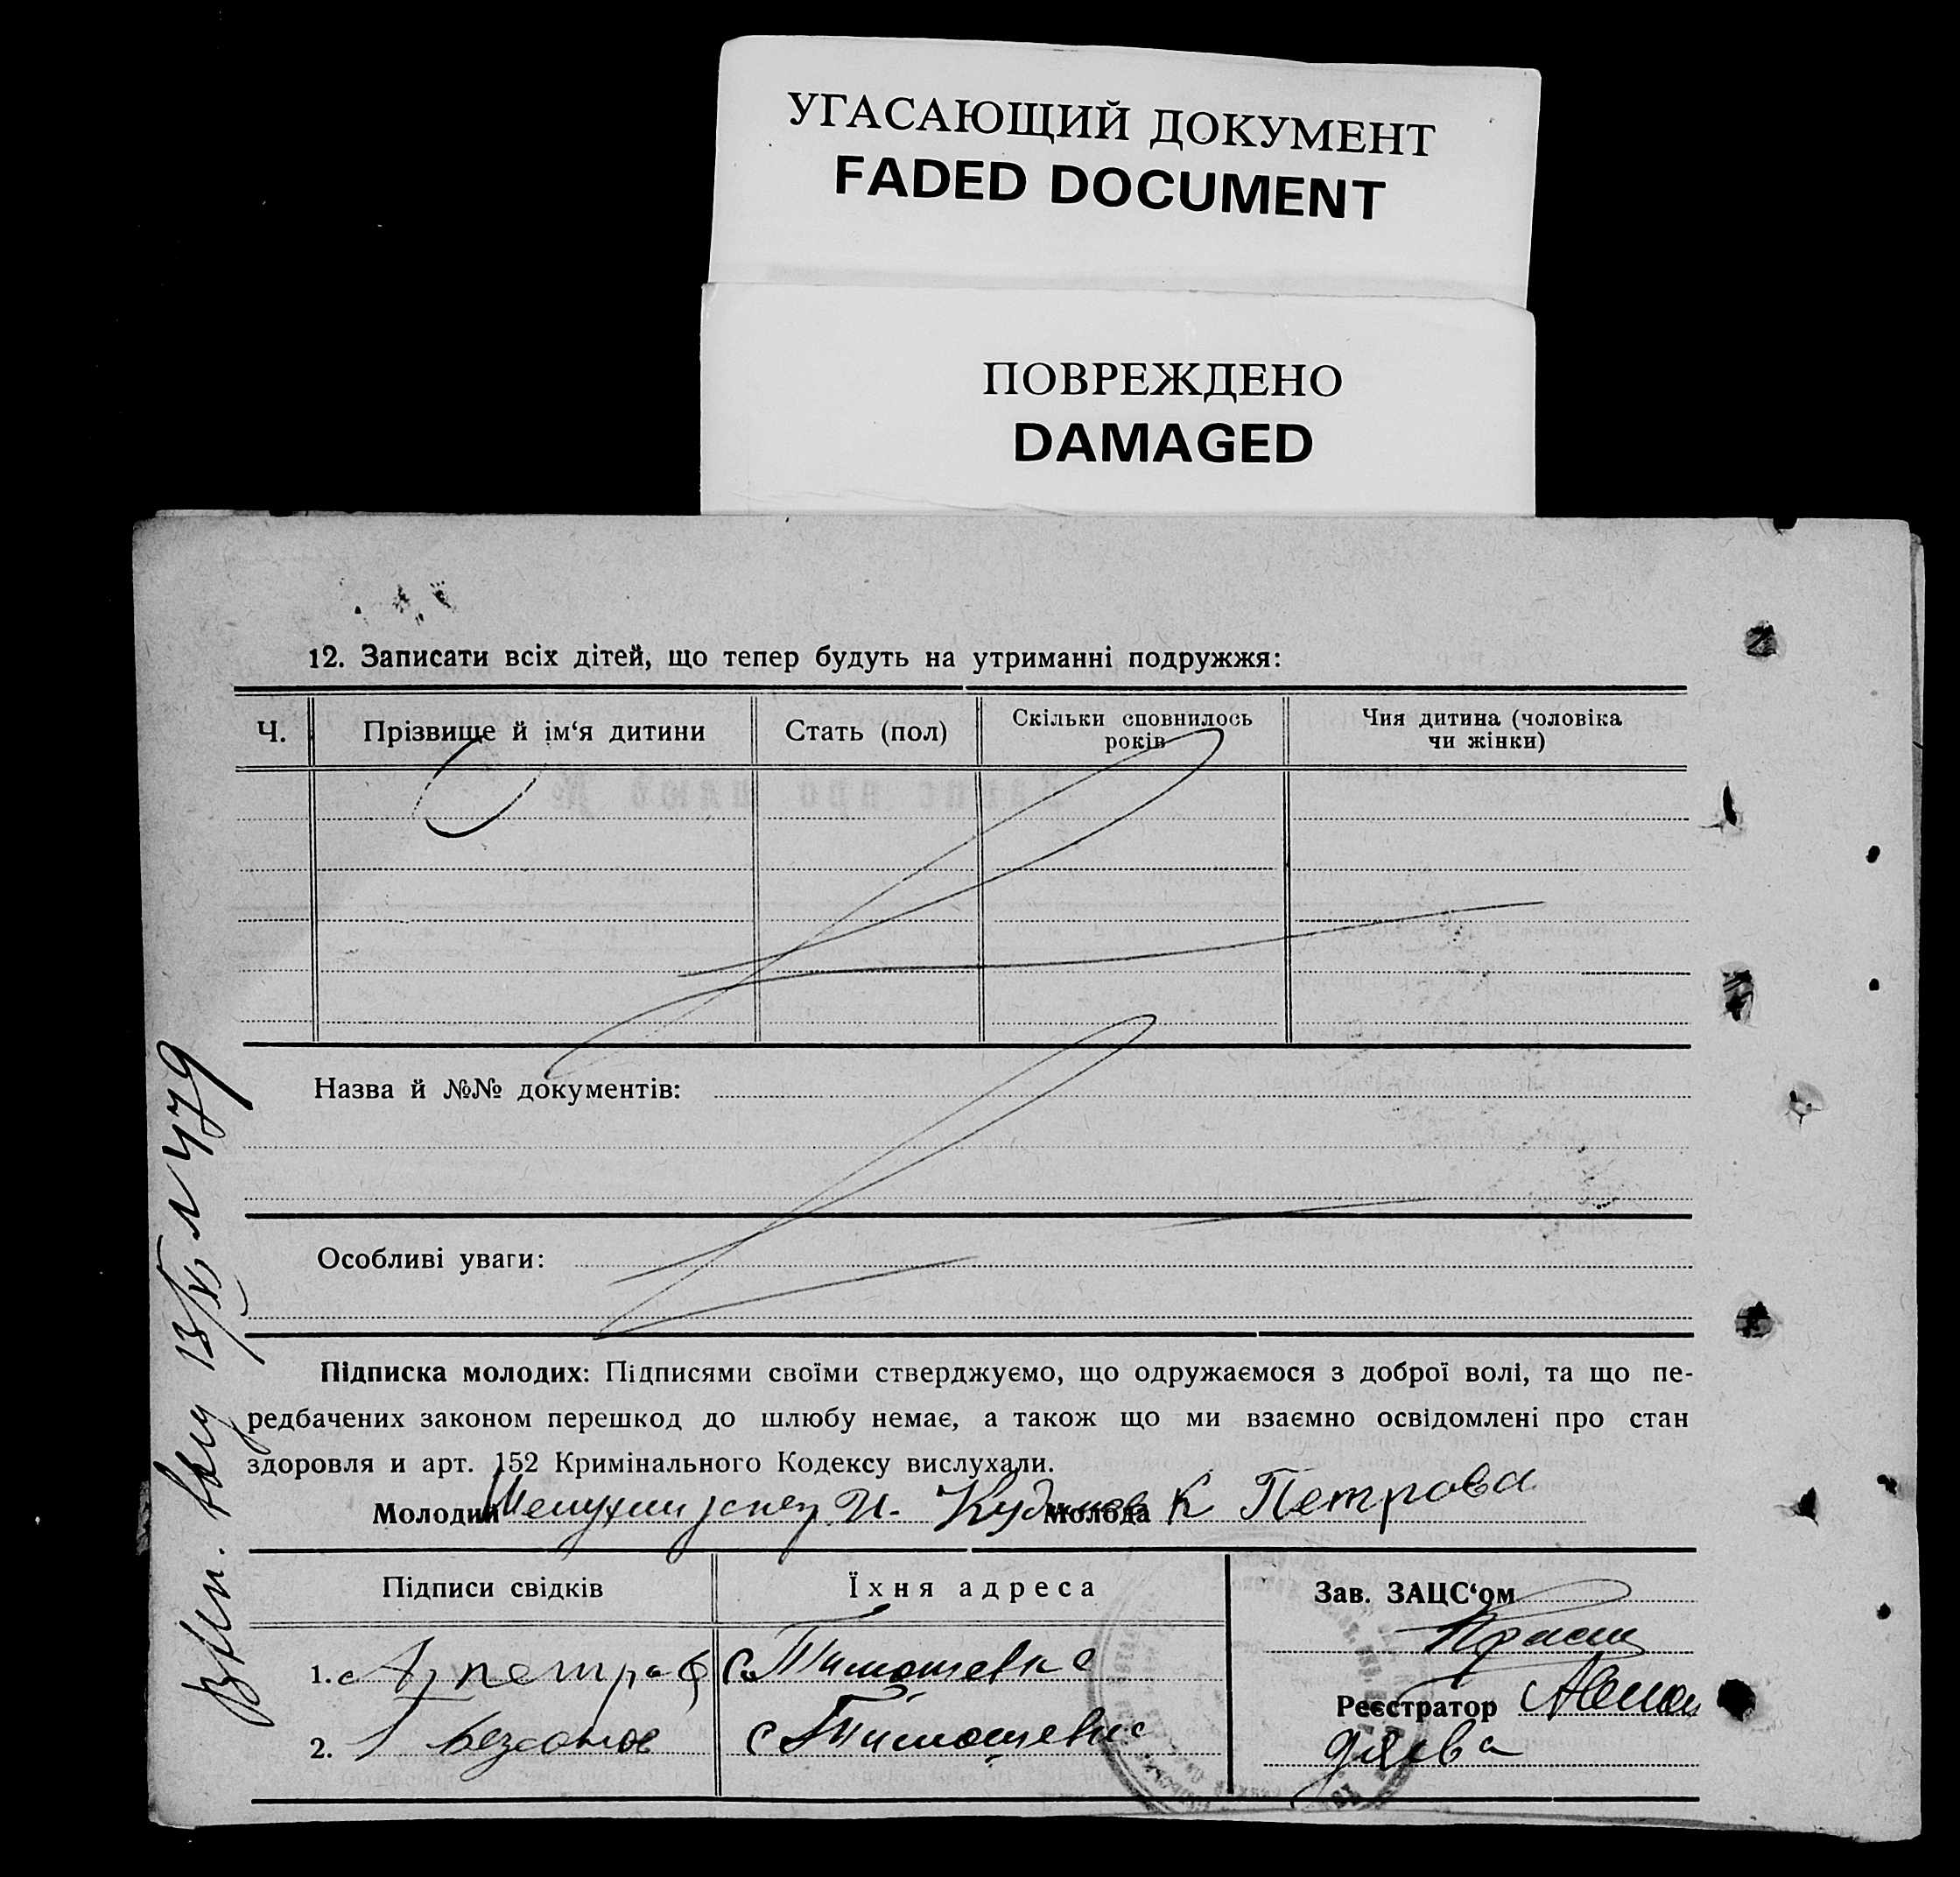 УГАСАЮЩИЙ ДОКУМЕНТ
FADED DOCUMENT
ПОВРЕЖДЕНО
DAMAGED
12. Записати всіх дітей, що тепер будуть на утриманні подружжя:
Ч.
Прізвище й ім‘я дитини
Стать (пол)
Скільки сповнилось
років
Чия дитина (чоловіка
чи жінки)
Назва й №№ документів:
Особливі уваги:
Підписка молодих: Підписями своїми стверджуємо, що одружаємося з доброї волі, та що пе-
редбачених законом перешкод до шлюбу немає, а також що ми взаємно освідомлені про стан
здоровля и арт. 152 Кримінального Кодексу вислухали.
Молодий
Молода К Петрова
Підписи свідків
Їхня адреса
1. Петров с. Тимошевка
2. с. Тимошевка
Зав. ЗАЦС‘ом
Реєстратор
13/V, N 479